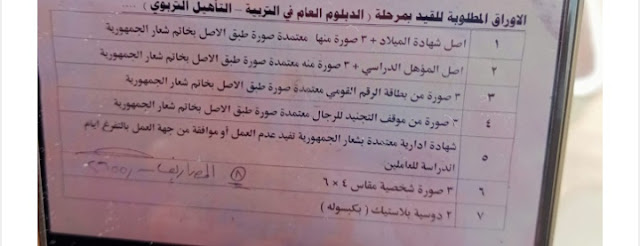 الاوراق المطلوبة للقيد بمرحلة ( الدبلوم العام في التربية – التأهيل التربوي ) ....
١ اصل شهادة الميلاد + ٣ صورة منها معتمدة صورة طبق الاصل بخاتم شعار الجمهورية
٢ اصل المؤهل الدراسي + ٣ صورة منه معتمدة صورة طبق الاصل بخاتم شعار الجمهورية
٣ ٣ صورة من بطاقة الرقم القومي معتمدة صورة طبق الاصل بخاتم شعار الجمهورية
٤ ٣ صورة من موقف التجنيد للرجال معتمدة صورة طبق الاصل بخاتم شعار الجمهورية
٥ شهادة ادارية معتمدة بشعار الجمهورية تفيد عدم العمل أو موافقة من جهة العمل بالتفرغ ايام
الدراسة للعاملين
٦ ٣ صورة شخصية مقاس ٤ × ٦
٨ المصاريف
٧ ٢ دوسية بلاستيك ( بكبسوله )